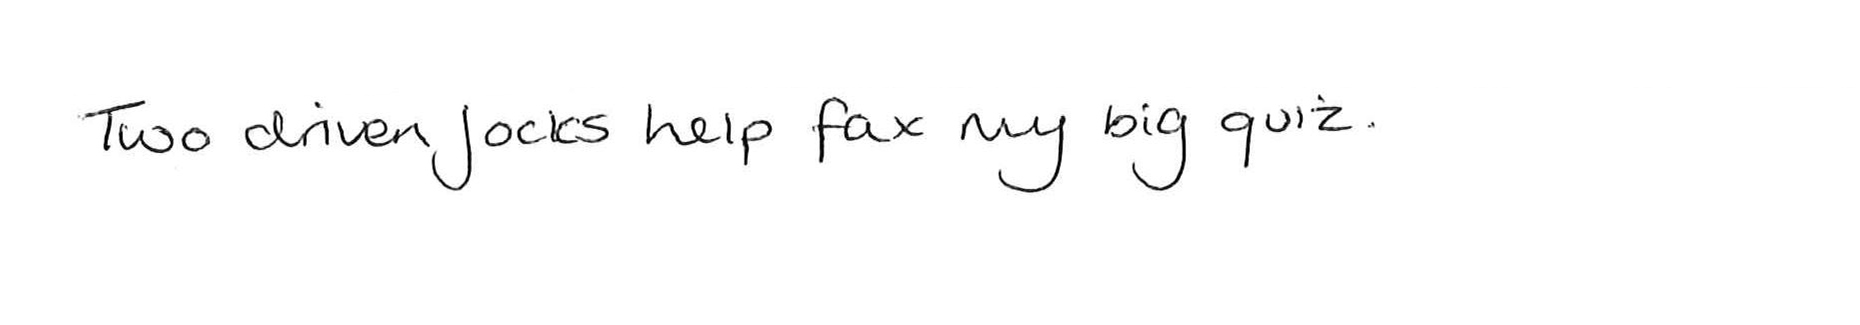 Two driven jocks help fax my big quiz.